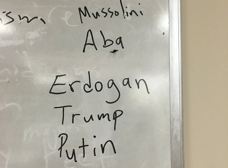 ism, Mussolini
Aba
Erdogan
Trump
Putin